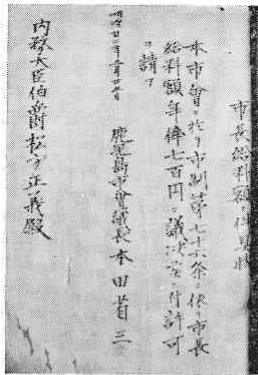 市長給料額ノ件具状
本市會ニ於テ市制第七十六条ニ依リ市長
給料額年俸七百円ト議决候ニ付許可
ヲ請フ
鹿児島市會議長 本田 三
内務大臣伯爵松方正義殿